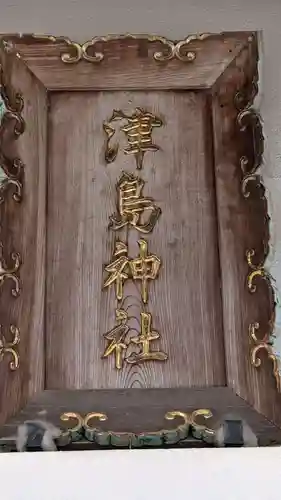 津島神社